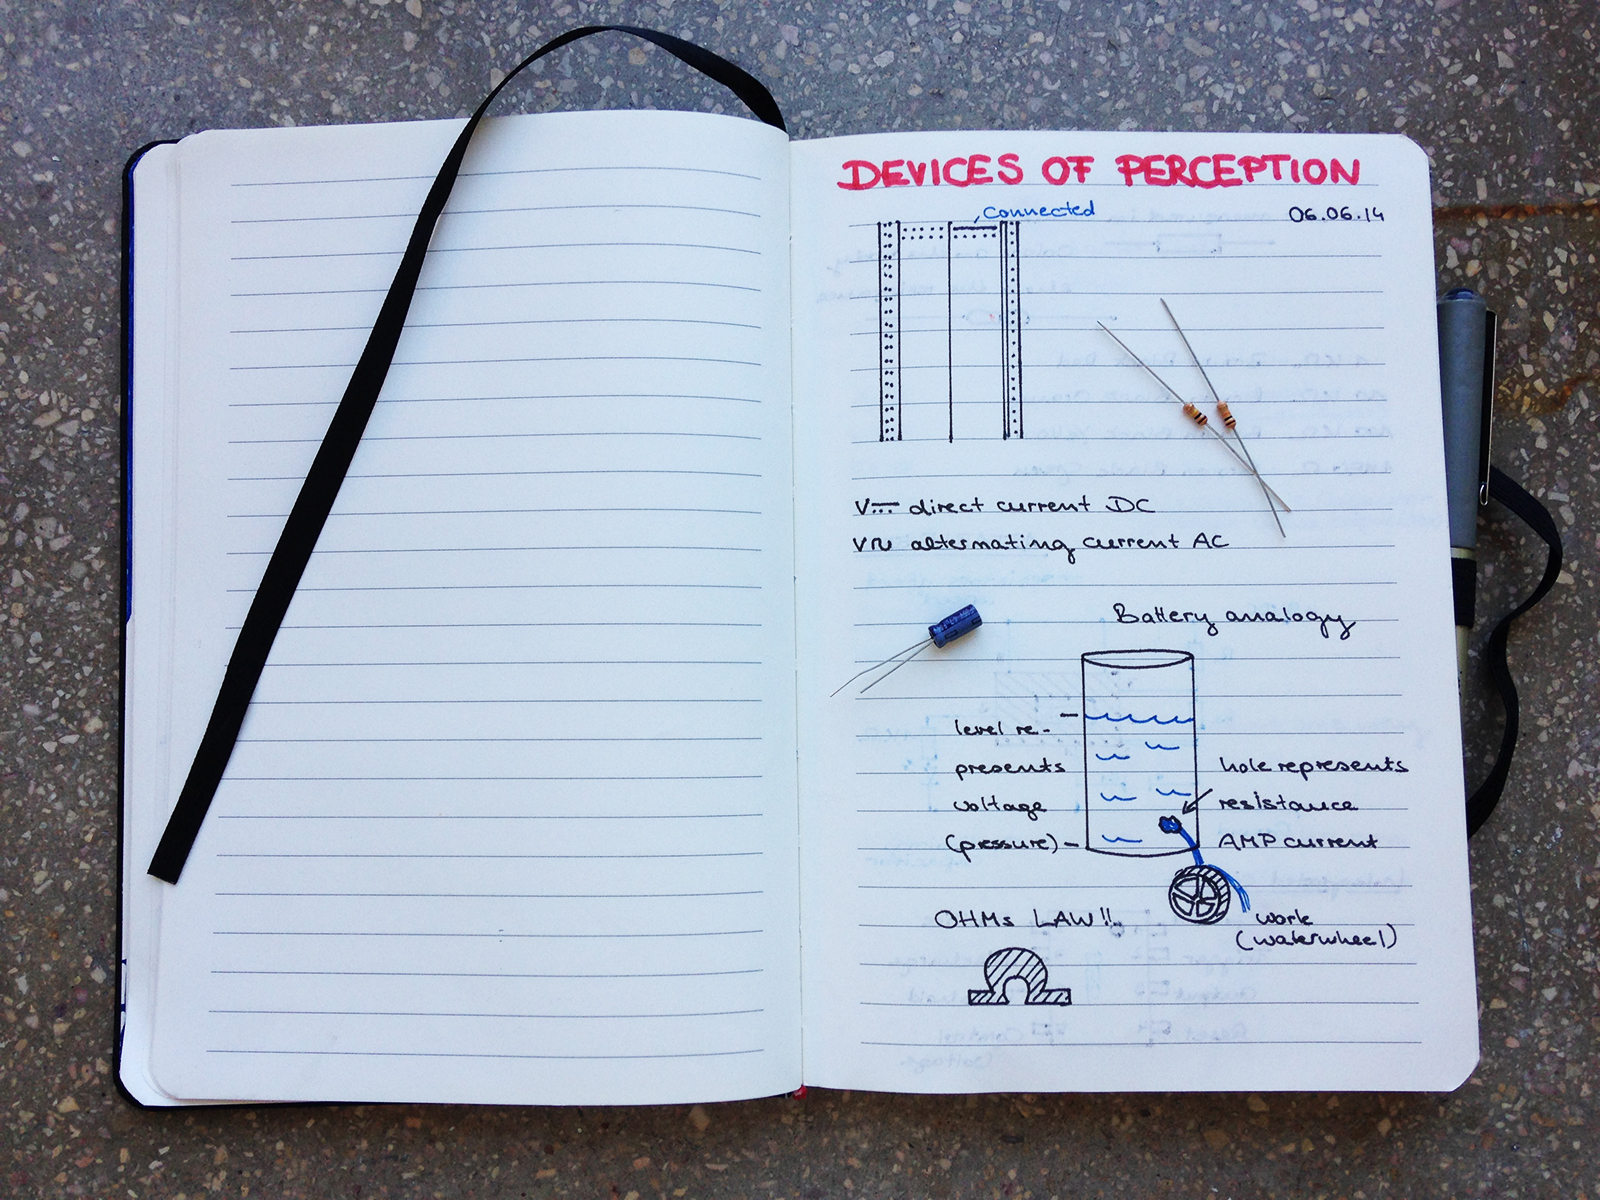 DEVICES OF PERCEPTION
connected
06.06.14
V⎓ direct current DC
V∿ alternating current AC
Battery analogy
level re-
presents
voltage
(pressure)
hole represents
resistance
AMP current
work
(waterwheel)
OHMs LAW!!